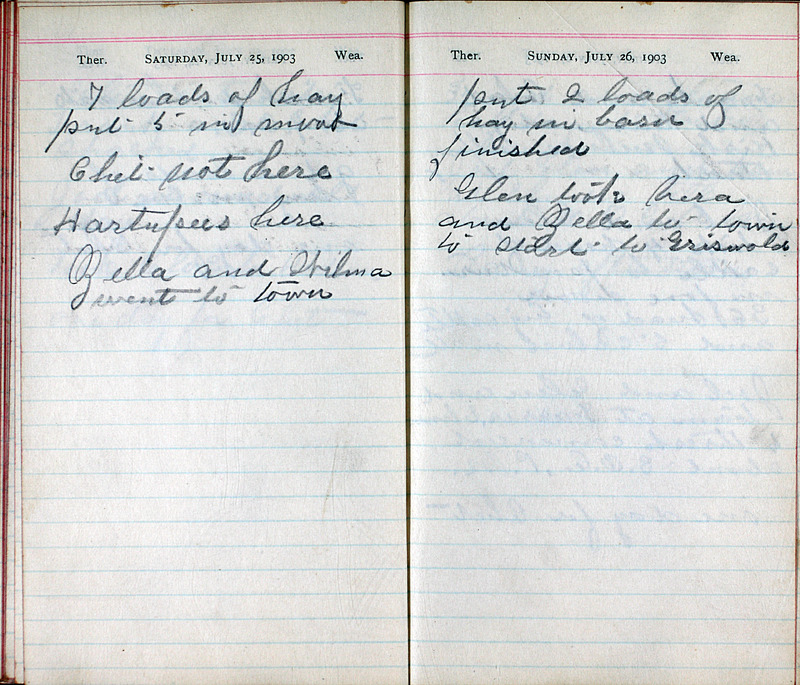 Ther. SATURDAY, JULY 25, 1903 Wea.
7 loads of hay
put 5 in mow
Chet not here
Hartupees here
Zella and Wilma
went to town
Ther. SUNDAY, JULY 26, 1903 Wea.
put 2 loads of
hay in barn
finished
Glen took
and Zella to town
to start to Griswold